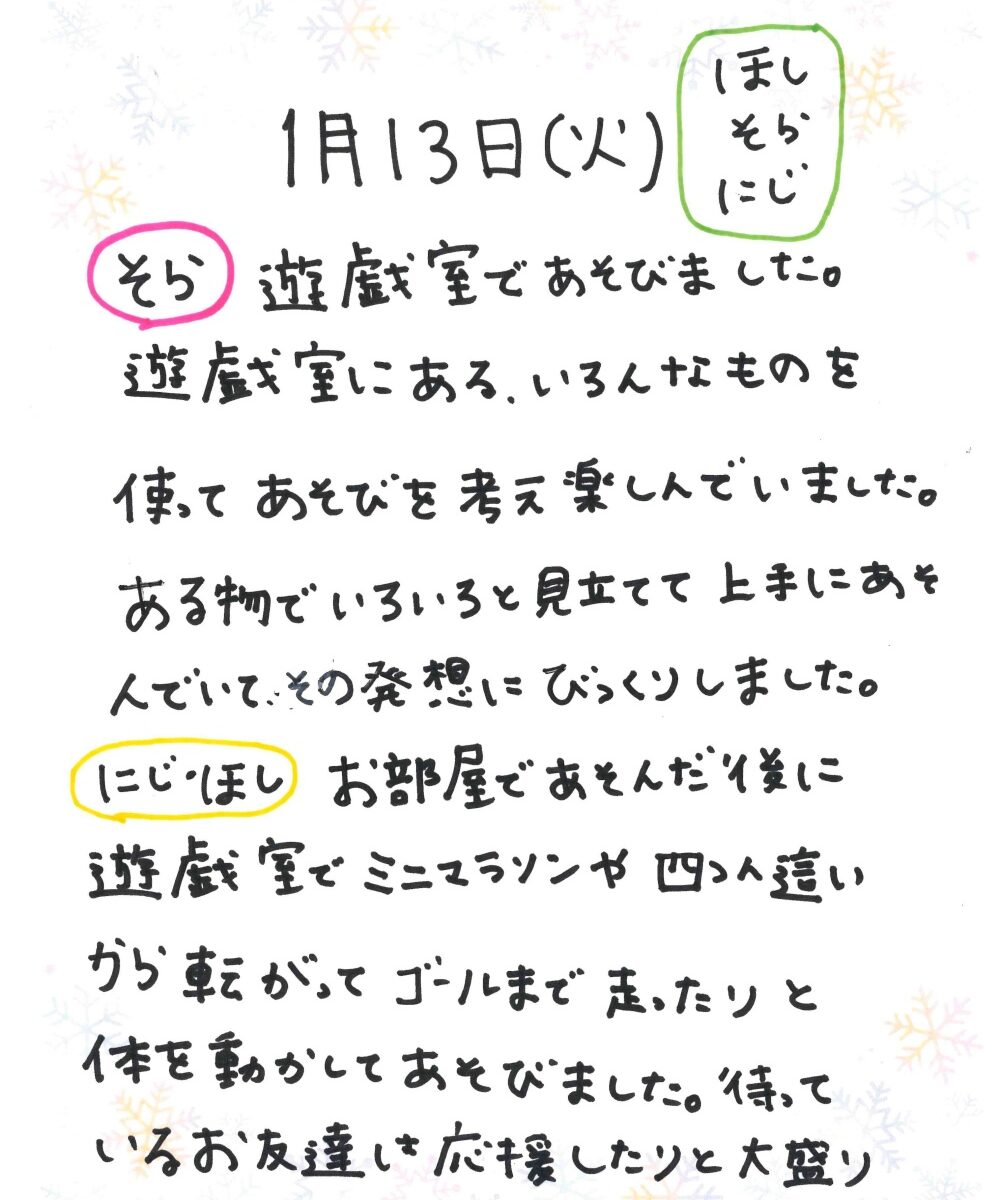 1月13日(火)
ほし
そら
にじ
そら 遊戯室であそびました。
遊戯室にある、いろんなものを
使ってあそびを考え楽しんでいました。
ある物でいろいろと見立てて上手にあそ
んでいて、その発想にびっくりしました。
にじ・ほし お部屋であそんだ後に
遊戯室でミニマラソンや四つん這い
から転がってゴールまで走ったりと
体を動かしてあそびました。待って
いるお友達は応援したりと大盛り